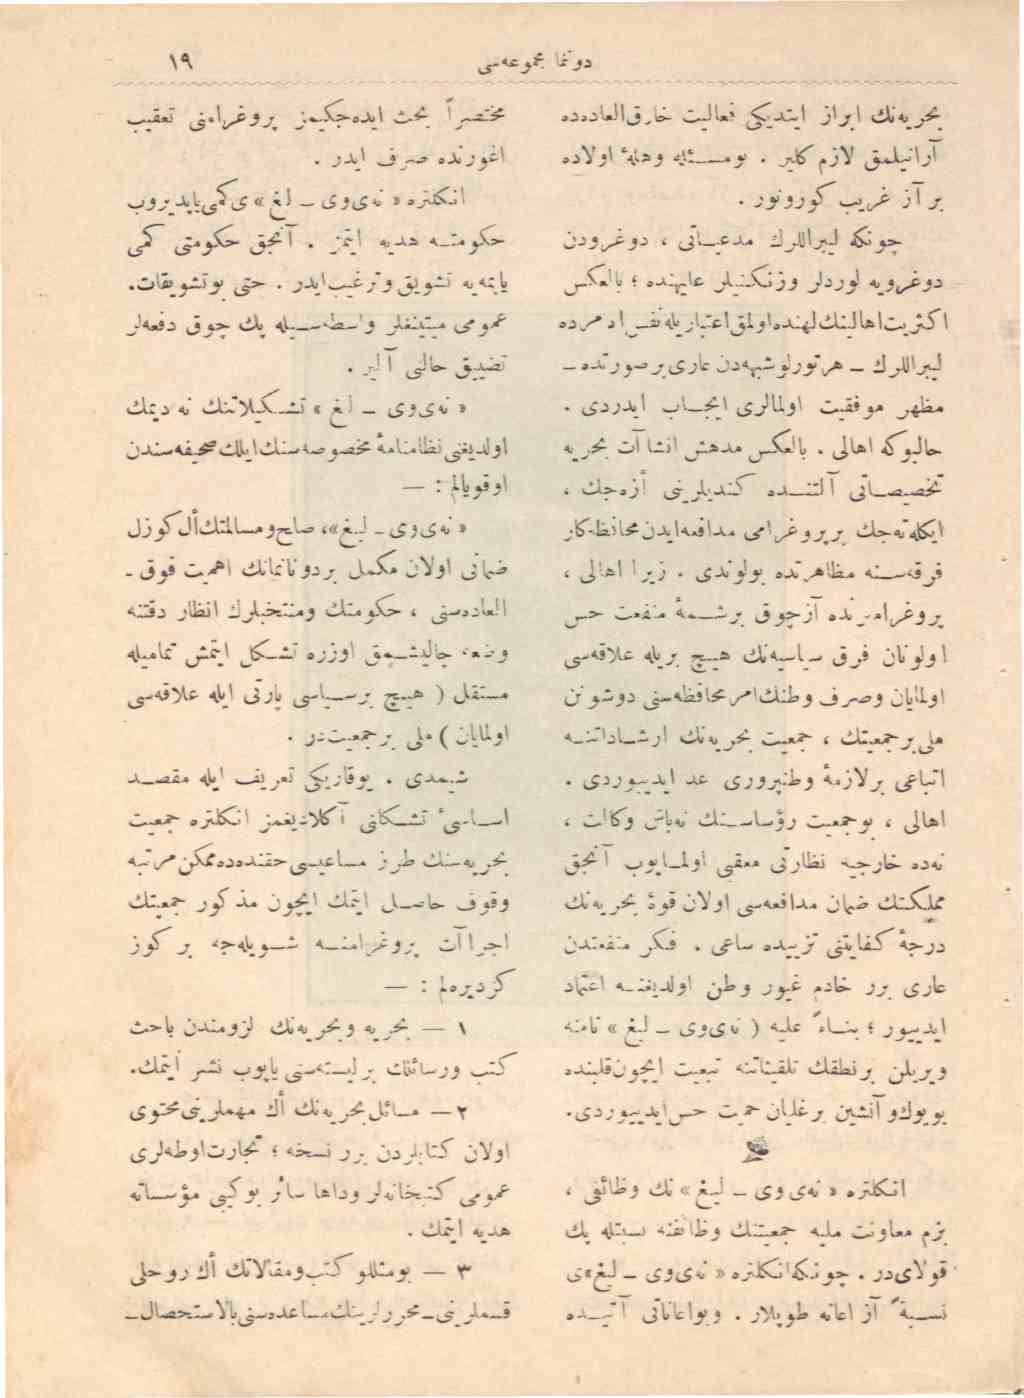 دوننما مجموعه‌سی
١٩
بحریه‌نك ابراز ایتدیكی فعالیت خارق‌العاده‌ده
آرانیلمق لازم كلیر . بومسئله وهلۀ اولاده
بر آز غریب كورونور .
چونكه لیبراللرك مدعیاتی ، دوغرودن
دوغرویه لوردلر وزنكینلر علیهنده ؛ بالعكس
اكثریت‌اهالینك‌لهنده‌اولمق‌اعتباریله‌نفس‌ امرده
لیبراللرك ـ هرتورلوشبهه‌دن عاری‌برصورتده ـ
مظهر موفقیت اولمالری ایجاب ایدردی .
حالبوكه اهالی . بالعكس مدهش انشاآت بحریه
تخصیصاتی آلتنده كندیلرینی ازه‌جك ،
ایكله‌ته‌جك برپروغرامی مدافعه‌ایدن محافظه‌كار
فرقه‌سنه مظاهرتده بولوندی . زیرا اهالی ،
پروغرامیزنده آزچوق برشمۀ منفعت حس
اولونان فرق سیاسیه‌نك هیچ بریله علاقه‌سی
اولمایان وصرف وطنك‌امر محافظه‌سنی دوشونن
ملی‌برجمعیتك ، جمعیت بحریه‌نك ارشاداتنه
اتباعی برلازمۀ وطنپروری عد ایدییوردی .
اهالی ، بوجمعیت رؤساسنك نه‌باش وكالت ،
نه‌ده خارجیه نظارتی معقبی اولمایوب آنجق
مملكتك ضمان مدافعه‌سی اولان قوۀ بحریه‌نك
درجۀ كفایتنی تزییده ساعی . فكر منفعتدن
عاری برر خادم غیور وطن اولدیغنه اعتماد
ایدییور ؛ بناءً علیه ( نه‌ی‌وی ـ لیغ » نامنه
ویریلن برنطقك تلقیناتنه تبعیت ایچون‌قلبنده
بویوك‌و آتشین برغلیان حمیت حس‌ایدییوردی.
انكلتره « نه‌ی وی ـ لیغ » نك وظائفی ،
بزم معاونت ملیه جمعیتنك وظائفنه نسبتله پك
قولای‌در . چونكه‌انكلتره « نه‌ی‌وی ـ لیغ»ی
نسبةً آز اعانه طوپلار . وبواعاناتی آتیده
مختصراً بحث ایده‌جكیمز پروغرامنی تعقیب
اغورنده صرف ایدر .
انكلتره « نه‌ی‌وی ـ لیغ »ی كمی‌یاپدیروب
حكومته هدیه ایتمز . آنجق حكومتی كمی
یاپمه‌یه تشویق وترغیب‌ایدر . حتی بوتشویقات.
عمومی میتینغلر واسطه‌سیله پك چوق دفعه‌لر
تضییق حالنی آلیر .
« نه‌ی‌وی ـ لیغ » تشكیلاتنك نه دیمك
اولدیغنی نظامنامۀ مخصوصه‌سنك‌ایلك صحیفه‌سندن
اوقویالم : —
« نه‌ی‌وی ـ لیغ»، صلح‌ومسالمتك‌ال كوزل
ضمانی اولان مكمل بردونانمانك اهمیت فوق ـ
العاده‌سنی ، حكومتك ومنتخبلرك انظار دقتنه
وضعه چالیشمق اوزره تشكل ایتمش تمامیله
مستقل ( هیچ برسیاسی پارتی ایله علاقه‌سی
اولمایان ) ملی برجمعیت‌در .
شیمدی . یوقاریكی تعریف ایله مقصد
اساسئ تشكلنی آكلادیغمز انكلتره جمعیت
بحریه‌سنك طرز مساعیسی‌حقنده‌ده‌ممكن مرتبه
وقوف حاصل ایتمك ایچون مذكور جمعیتك
اجراآت پروغرامنه شویله‌جه بر كوز
كزدیره‌لم : —
١ — بحریه وبحریه‌نك لزومندن باحث
كتب ورسائلك برلیسته‌سنی یاپوب نشر ایتمك.
٢ — مسائل‌بحریه‌نك اك مهملرینی‌محتوی
اولان كتابلردن برر نسخه ؛ تجارت‌اوطه‌لری
عمومی كتبخانه‌لر وداها سائر بوكبی مؤسساته
هدیه ایتمك .
٣ — بومثللو كتب‌ومقالاتك اك روحلی
قسملرینی ـ محررلرینك‌مساعده‌سنی‌بالاستحصال ـ